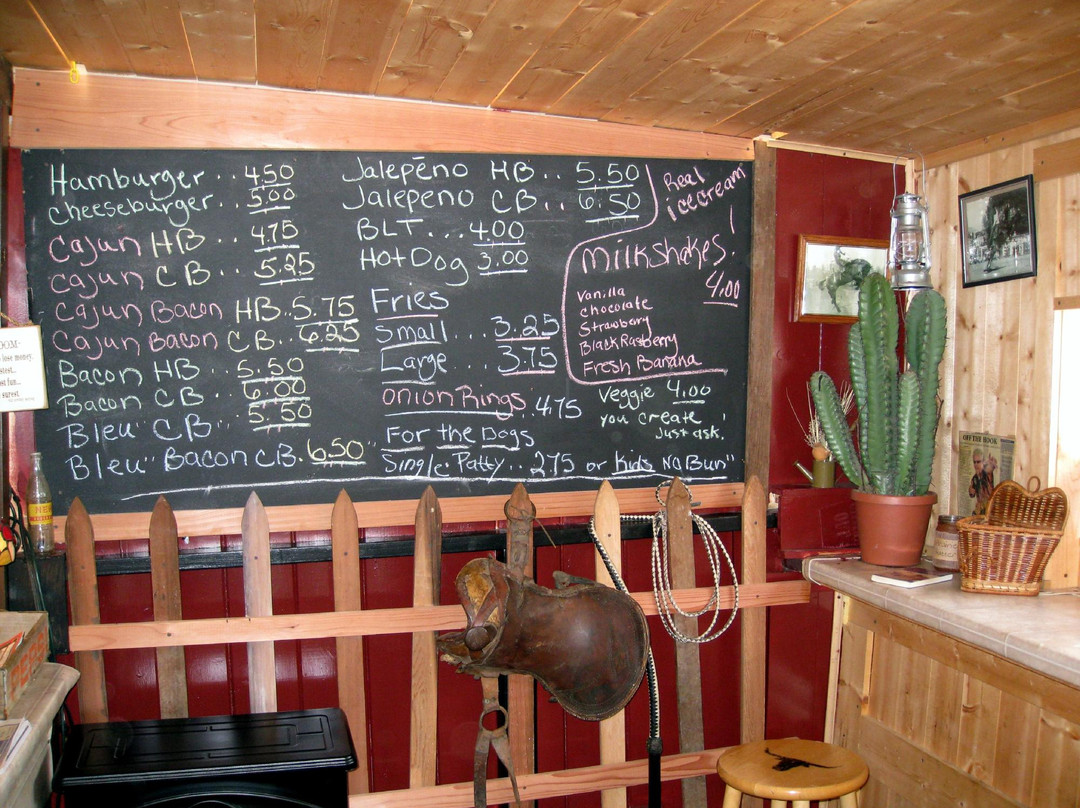 Hamburger.. 4.50
Cheeseburger.. 5.00
Cajun HB.. 4.75
Cajun CB.. 5.25
Cajun Bacon HB..5.75
Cajun Bacon CB..6.25
Bacon HB.. 5.50
Bacon CB.. 6.00
"Bleu" CB.. 5.50
"Bleu" Bacon CB.6.50
Jalepēno HB.. 5.50
Jalepeno CB.. 6.50
BLT...4.00
Hot Dog 3.00
Fries
Small... 3.25
Large.. 3.75
Onion Rings 4.75
For the Dogs
Single Patty.. 2.75 or Kids "No Bun"
Real
icecream!
Milkshakes!
4.00
Vanilla
chocolate
Strawbery
Black Rasberry
Fresh Banana
Veggie 4.00
you create
Just ask!
OOM-
lose money.
PEPSI